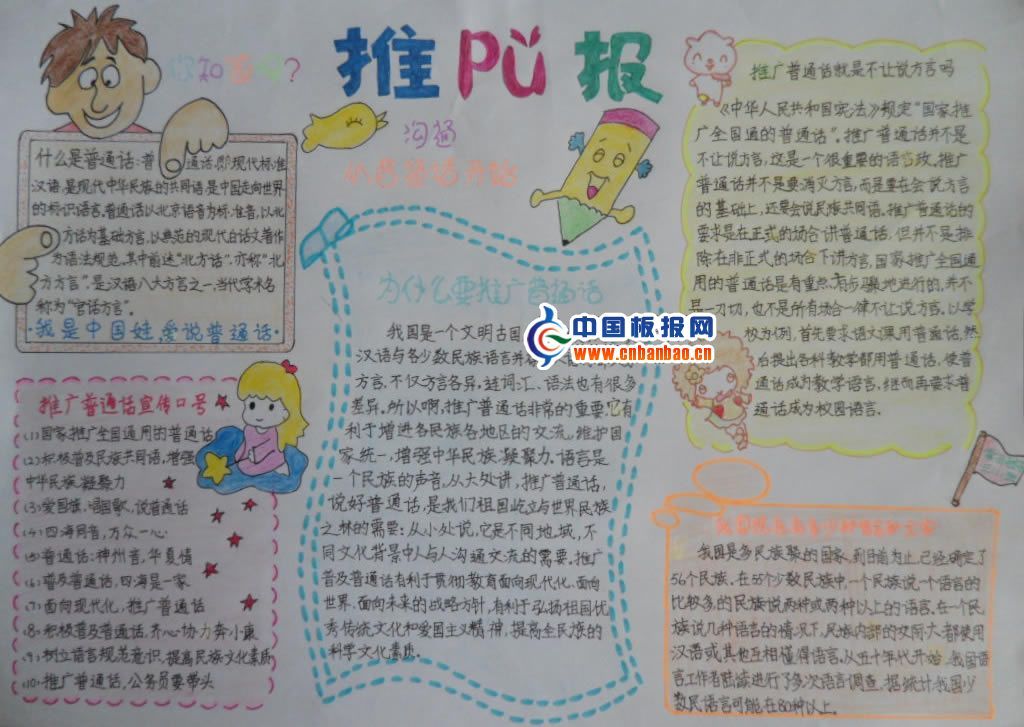 推PŬ报
你知道吗?
沟通
从普通话开始
什么是普通话:普通话,即现代标准
汉语,是现代中华民族的共同语,是中国走向世界
的标识语言,普通话以北京语音为标准音,以北
方话为基础方言,以典范的现代白话文著作
为语法规范,其中前述“北方话”,亦称“北
方方言”,是汉语八大方言之一,当代学术名
称为“官话方言”.
·我是中国娃,爱说普通话·
推广普通话宣传口号
(1)国家推广全国通用的普通话
(2)积极普及民族共同语,增强
中华民族凝聚力
(3)爱国旗,唱国歌,说普通话
(4)四海同音,万众一心
(5)普通话:神州音,华夏情
(6)普及普通话,四海是一家
(7)面向现代化,推广普通话
(8)积极普及普通话,齐心协力奔小康
(9)树立语言规范意识,提高民族文化素质
(10)推广普通话,公务员要带头
为什么要推广普通话
我国是一个文明古国
汉语与各少数民族语言并
方言,不仅方言各异,连词汇、语法也有很多
差异。所以啊,推广普通话非常的重要,它有
利于增进各民族各地区的交流,维护国
家统一,增强中华民族凝聚力。语言是
一个民族的声音,从大处讲,推广普通话,
说好普通话,是我们祖国屹立与世界民族
之林的需要;从小处说,它是不同地域,不
同文化背景中人与人沟通交流的需要。推广
普及普通话有利于贯彻教育面向现代化,面向
世界,面向未来的战略方针,有利于弘扬祖国优
秀传统文化和爱国主义精神,提高全民族的
科学文化素质。
中国板报网
www.cnbanbao.cn
推广普通话就是不让说方言吗
《中华人民共和国宪法》规定“国家推
广全国通的普通话”。推广普通话并不是
不让说方言,这是一个很重要的语言政。推广
普通话并不是要消灭方言,而是要在会说方言
的基础上,还要会说民族共同语。推广普通话的
要求是在正式的场合讲普通话,但并不是排
除在非正式的场合下讲方言,国家推广全国通
用的普通话是有重点,有步骤地进行的,并不
是一刀切,也不是所有场合一律不让说方言,以学
校为例,首先要求语文课用普通话,然
后提出各种教学都用普通话,使普
通话成为教学语言,继而再要求普
通话成为校园语言.
我国是多民族聚的国家,到目前为止,已经确定了
56个民族。在55个少数民族中,一个民族说一个语言的
比较多的民族说两种或两种以上的语言。在一个民
族说几种语言的情况下,民族内部的交际大都使用
汉语或其他互相懂得语言,从五十年代开始,我国语
言工作者陆续进行了多次语言调查,据统计,我国少
数民语言可能在80种以上。